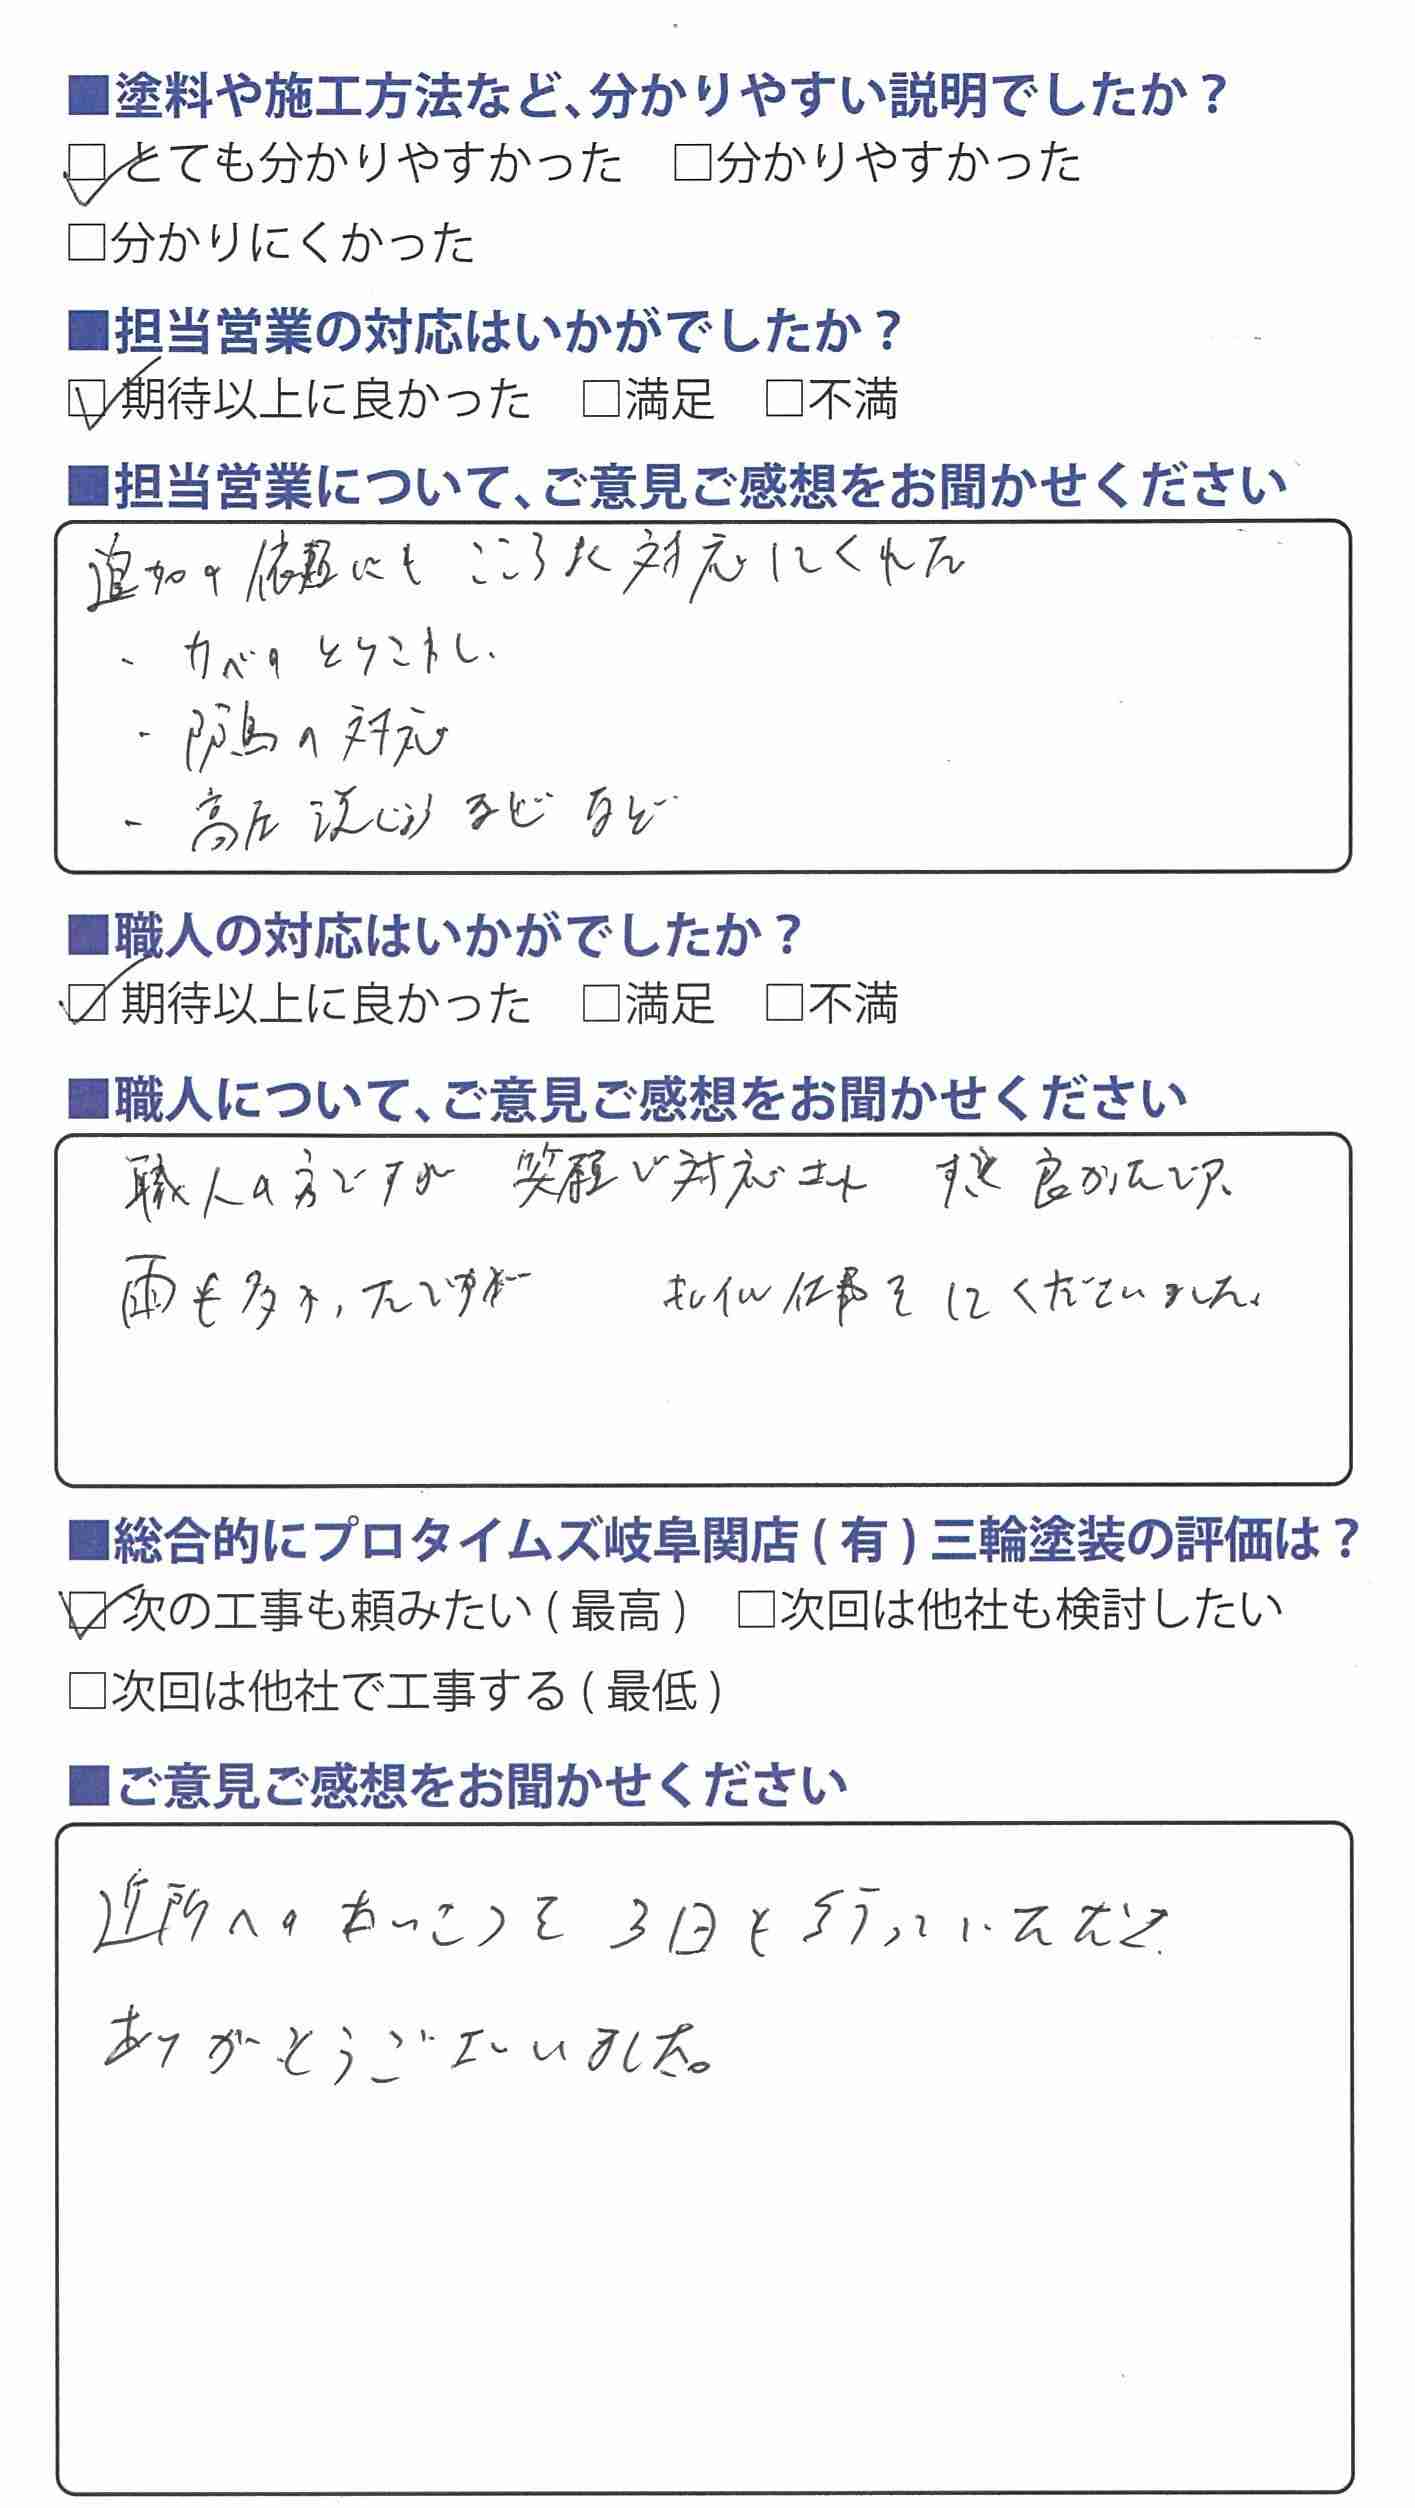 ■塗料や施工方法など、分かりやすい説明でしたか?
□とても分かりやすかった □分かりやすかった
□分かりにくかった
■担当営業の対応はいかがでしたか?
□期待以上に良かった □満足 □不満
■担当営業について、ご意見ご感想をお聞かせください
追加の依頼にも こころよく対応してくれた
・カベの とりこわし
・防鳥の対応
・高圧洗じょう など など
■職人の対応はいかがでしたか?
□期待以上に良かった □満足 □不満
■職人について、ご意見ご感想をお聞かせください
職人の方ですが 笑顔で対応され 良かったです、
雨も多かったですが キレイな仕事をしてくださいました。
■総合的にプロタイムズ岐阜関店(有)三輪塗装の評価は?
□次の工事も頼みたい(最高) □次回は他社も検討したい
□次回は他社で工事する(最低)
■ご意見ご感想をお聞かせください
近所への あいさつを 3日も 行っていただき
ありがとうございました。